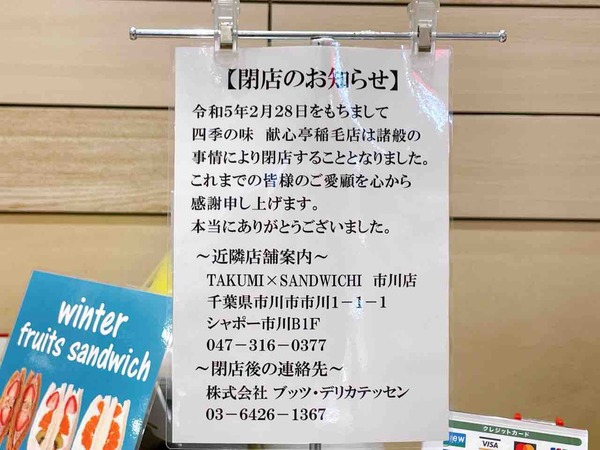 【閉店のお知らせ】
令和5年2月28日をもちまして
四季の味 献心亭稲毛店は諸般の
事情により閉店することとなりました。
これまでの皆様のご愛顧を心から
感謝申し上げます。
本当にありがとうございました。
～近隣店舗案内～
TAKUMI×SANDWICHI 市川店
千葉県市川市市川1－1－1
シャポー市川B1F
047－316－0377
～閉店後の連絡先～
株式会社 ブッツ・デリカテッセン
03－6426－1367
winter
fruits sandwich
クレジットカード
VISA